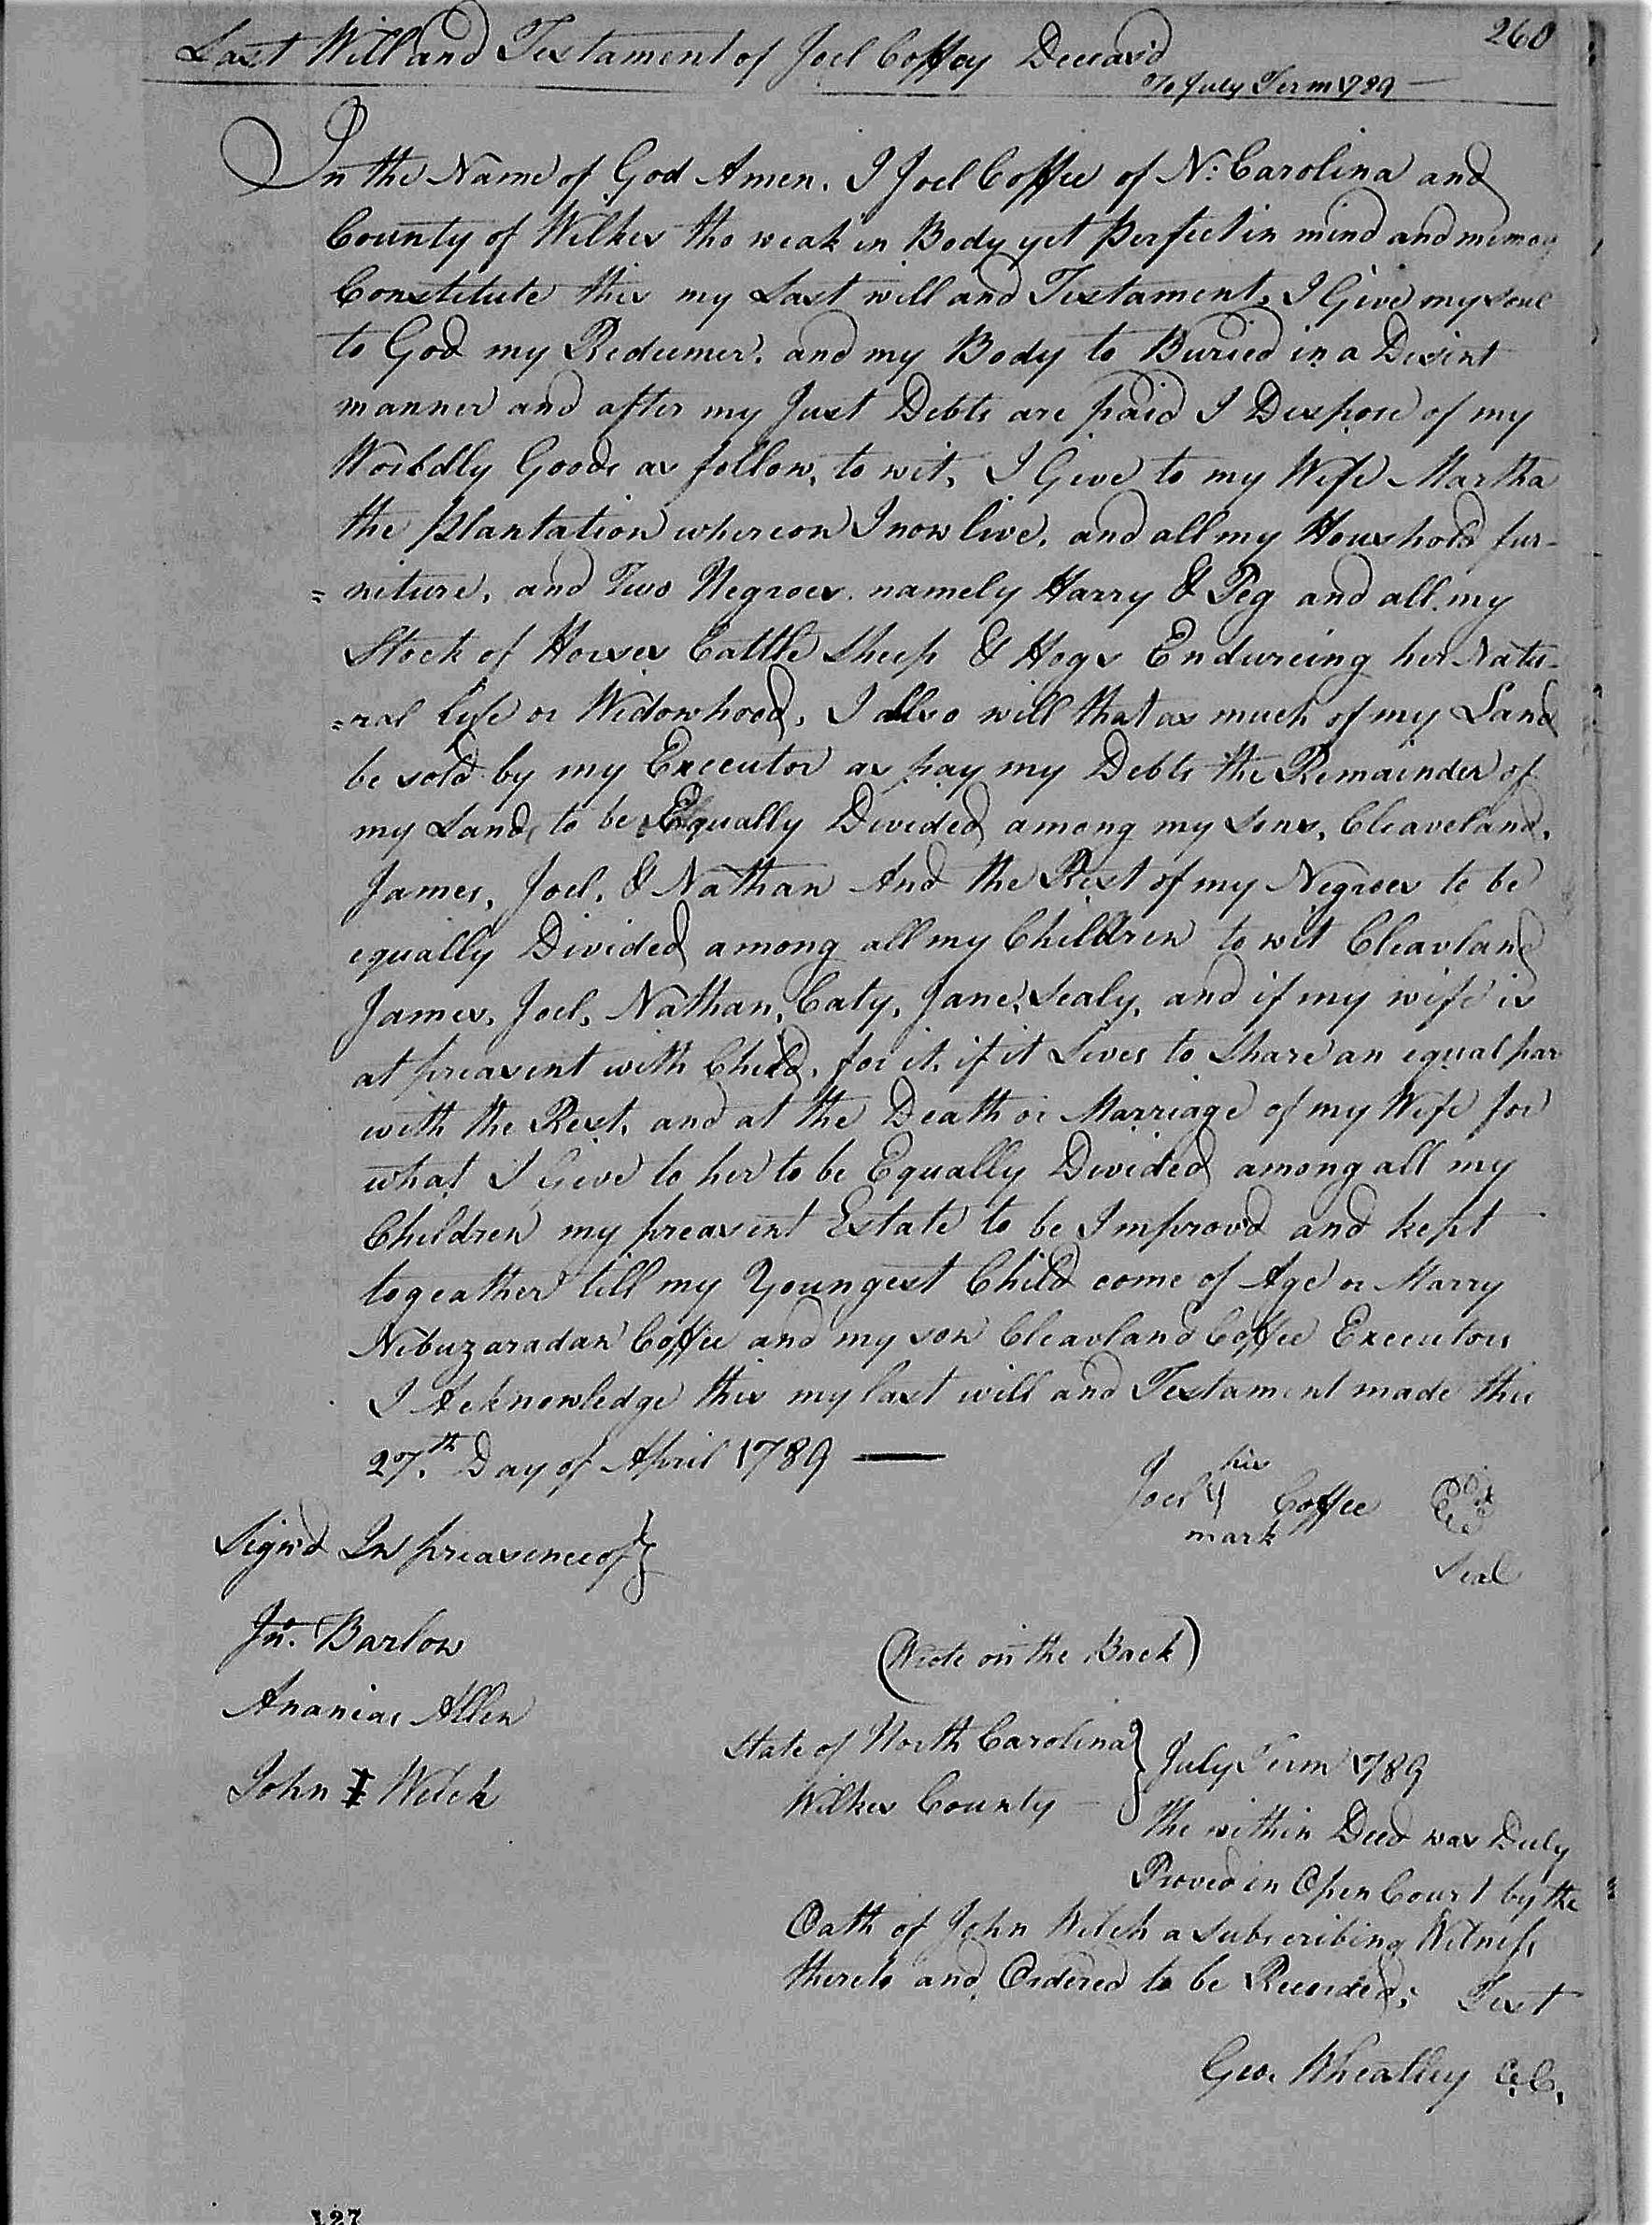 260
Last Will and Testament of Joel Coffey Deceas'd
July Term 1789
In the Name of God Amen. I Joel Coffee of N: Carolina and
County of Wilkes tho weak in Body yet perfect in mind and memory
Constitute this my Last will and Testament. I Give my soul
to God my Redeemer. and my Body to Buried in a Desent
manner and after my Just Debts are paid I Dispose of my
Worldly Goods as follow, to wit, I Give to my Wife Martha
the plantation whereon I now live, and all my Houshold fur-
= niture, and Two Negroes. namely Harry & Peg and all my
Stock of Horses Cattle Sheep & Hogs Endureing her Natu-
=ral life or Widowhood, I allso will that as much of my Land
be sold by my Executor as pay my Debts the Remainder of
my Land, to be Equally Divided among my sons, Cleaveland,
James, Joel, & Nathan And the Rest of my Negroes to be
equally Divided among all my Children to wit Cleavland
James, Joel, Nathan, Caty, Jane, Sealy, and if my wife is
at preasent with Child, for it, if it Lives to share an equal par
with the Rest, and at the Death or Marriage of my Wife for
what I Give to her to be Equally Divided among all my
Children my preasent Estate to be Improvd and kept
togeather till my Youngest Child come of Age or Marry
Nebuzaradan Coffee and my son Cleavland Coffee Executors
I Acknowledge this my last will and Testament made this
27th. Day of April 1789 —
his
Joel Coffee
mark
Seal
Sign'd In preasence of }
Jno. Barlow
Ananias Allen
John I Welch
(Wrote on the Back)
State of North Carolina } July Term 1789
Wilkes County —
The within Deed was Duly
Proved in Open Court by the
Oath of John Welch a subscribing Witness
thereto and Ordered to be Recorded; Test
Geo. Wheatley C.C.
127